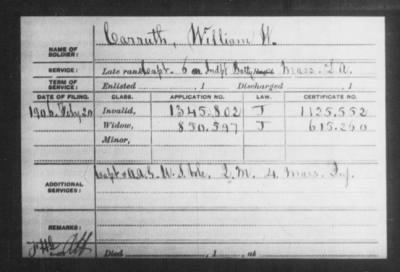 NAME OF SOLDIER: Carruth, William W.
SERVICE: Late rank Capt. 6 Indpt Batty Mass. L A.
TERM OF SERVICE: Enlisted , 1 Discharged , 1
DATE OF FILING. CLASS. APPLICATION NO. LAW. CERTIFICATE NO.
Invalid, 1345.802 J 1125.552
Widow, 850.597 J 615.260
Minor,
ADDITIONAL SERVICES: 4 Mass. Inf.
REMARKS:
Died , 1 , at